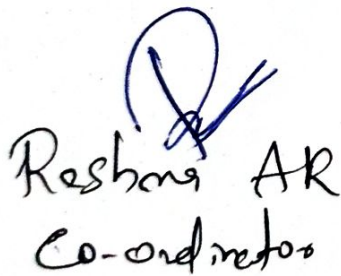 Reshma AR
Co-ordinator